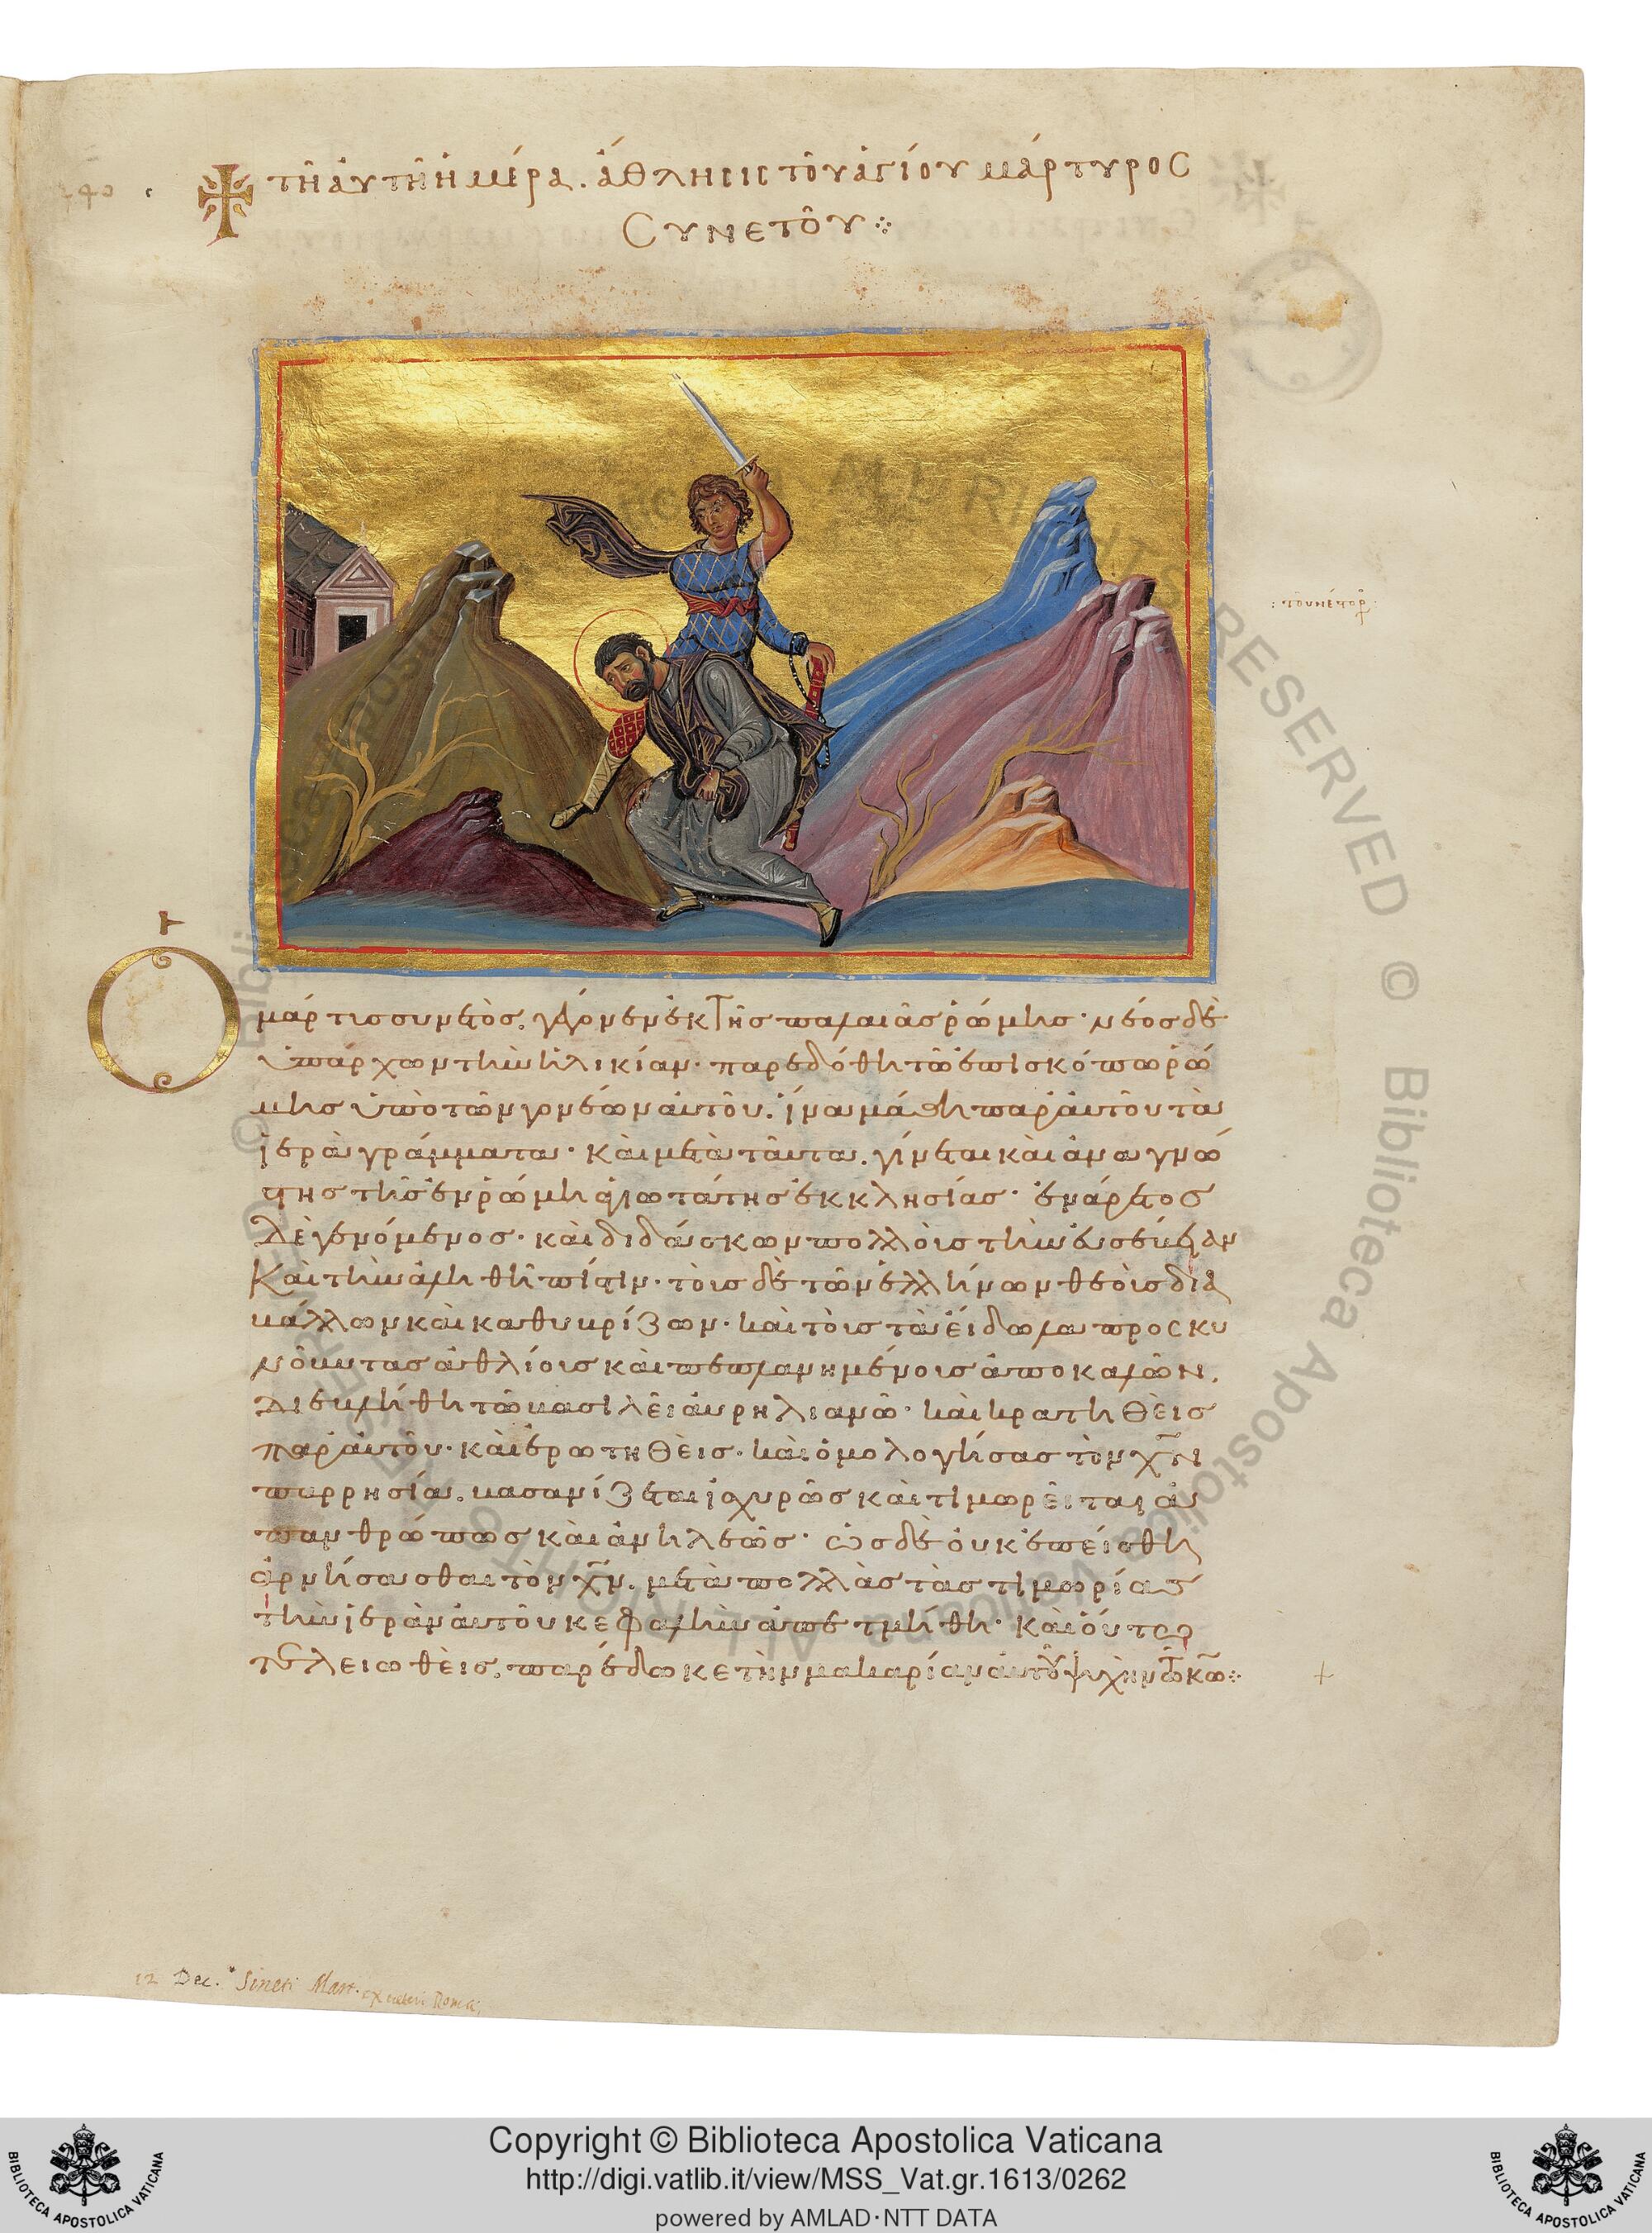 τῆ αὐτῆ ἡμέρα. ἄθλησις τοῦ ἁγίου μάρτυρος
Συνετοῦ
: τοῦ νέστορ :
Ὁ
μάρτις συνετὸς, γέγονεν ἐκ τῆς παλαιᾶς ῥώμης· νέος δὲ
ὑπάρχων τὴν ἡλικίαν· παρεδόθη τῶ ἐπισκόπω ῥώ
μης ὑπὸ τῶν γονέων αὐτοῦ. ἵνα μάθη παρ' αὐτοῦ τὰ
ἱερὰ γράμματα· καὶ μετὰ ταῦτα. γίνεται καὶ ἀναγνώ
στης τῆς ἐν ῥώμη ἁγιωτάτης ἐκκλησίας· ἐνάρετος
λεγενόμενος· καὶ διδάσκων πολλοῖς τὴν εὐσέβειαν
καὶ τὴν ἀληθῆ πίστιν· τοῖς δὲ τῶν ἑλλήνων θεοῖς δια
βάλλων καὶ καθυβρίζων· καὶ τοῖς τὰ εἴδωλα προσκυ
νοῦντας ἀθλίοις καὶ πεπλανημένοις ἀποκαλῶν,
διεβλήθη τῶ βασιλεῖ αὐρηλιανῶ· καὶ κρατηθεὶς
παρ' αὐτοῦ· καὶ ἐρωτηθεὶς· καὶ ὁμολογήσας τὸν χν
παρρησία. βασανίζεται ἰσχυρῶς καὶ τιμωρεῖται ἀ
πανθρώπως καὶ ἀνηλεῶς· ὡς δὲ οὐκ ἐπείσθη
ἀρνήσασθαι τὸν χν. μετὰ πολλὰς τὰς τιμωρίας
τὴν ἱερὰν αὐτοῦ κεφαλὴν ἀπετμήθη· καὶ οὕτω
τελειωθεὶς, παρέδωκε τὴν μακαρίαν αὐτοῦ ψυχὴν τῶ κω
12 Dec. Sineti Mart. ex veteri Roma.
ALL RIGHTS RESERVED © Biblioteca Apostolica Vaticana
Copyright © Biblioteca Apostolica Vaticana
http://digi.vatlib.it/view/MSS_Vat.gr.1613/0262
powered by AMLAD·NTT DATA
BIBLIOTECA APOSTOLICA VATICANA
BIBLIOTECA APOSTOLICA VATICANA